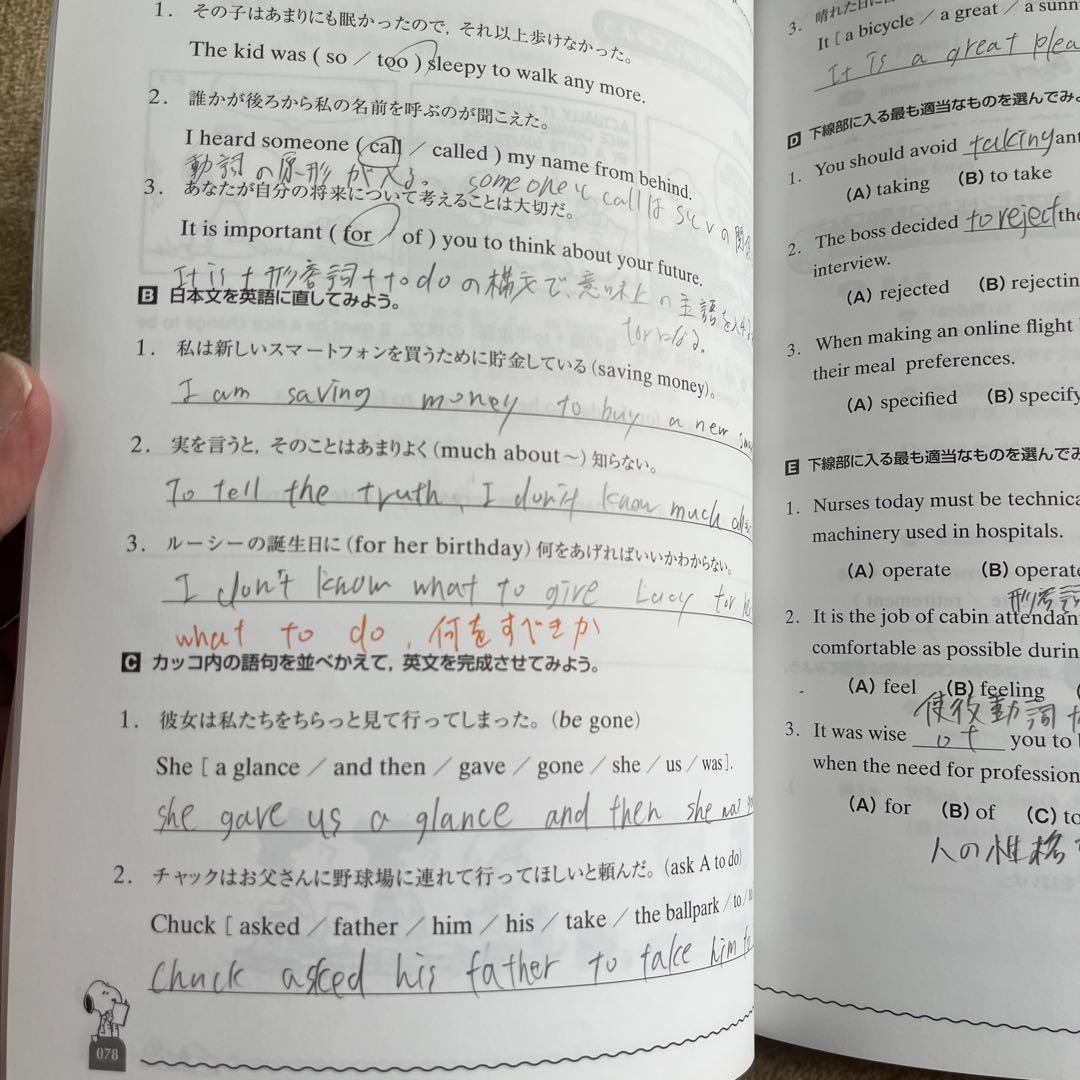 1. その子はあまりにも眠かったので，それ以上歩けなかった。
The kid was ( so / too ) sleepy to walk any more.
2. 誰かが後ろから私の名前を呼ぶのが聞こえた。
I heard someone ( call / called ) my name from behind.
動詞の原形が入る。 someoneとcallはSとVの関係
3. あなたが自分の将来について考えることは大切だ。
It is important ( for / of ) you to think about your future.
It is + 形容詞 + to do の構文で、意味上の主語を
forになる。
B 日本文を英語に直してみよう。
1. 私は新しいスマートフォンを買うために貯金している (saving money)。
I am saving money to buy a new
2. 実を言うと，そのことはあまりよく (much about～) 知らない。
To tell the truth, I don't know much
3. ルーシーの誕生日に (for her birthday) 何をあげればいいかわからない。
I don't know what to give Lucy for
what to do, 何をすべきか
C カッコ内の語句を並べかえて，英文を完成させてみよう。
1. 彼女は私たちをちらっと見て行ってしまった。(be gone)
She [ a glance / and then / gave / gone / she / us / was ].
she gave us a glance and then she was
2. チャックはお父さんに野球場に連れて行ってほしいと頼んだ。(ask A to do)
Chuck [ asked / father / him / his / take / the ballpark / to /
Chuck asked his father to take him to
078
3. 晴れた日に
It [ a bicycle / a great / a sunn
It is a great plea
D 下線部に入る最も適当なものを選んでみよ
1. You should avoid taking ant
(A) taking (B) to take
2. The boss decided to reject the
interview.
(A) rejected (B) rejectin
3. When making an online flight
their meal preferences.
(A) specified (B) specify
E 下線部に入る最も適当なものを選んでみ
1. Nurses today must be technica
machinery used in hospitals.
(A) operate (B) operate
形容詞
2. It is the job of cabin attendan
comfortable as possible durin
(A) feel (B) feeling
使役動詞
3. It was wise of you to
when the need for profession
(A) for (B) of (C) to
人の性格